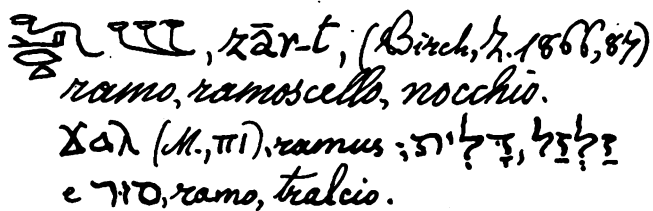 , zār-t, (Birch, Z. 1866, 87)
ramo, ramoscello, nocchio.
ϫⲁⲗ (M., ⲡⲓ), ramus; דָּלִית, זַלְזַל
e סוּר, ramo, tralcio.